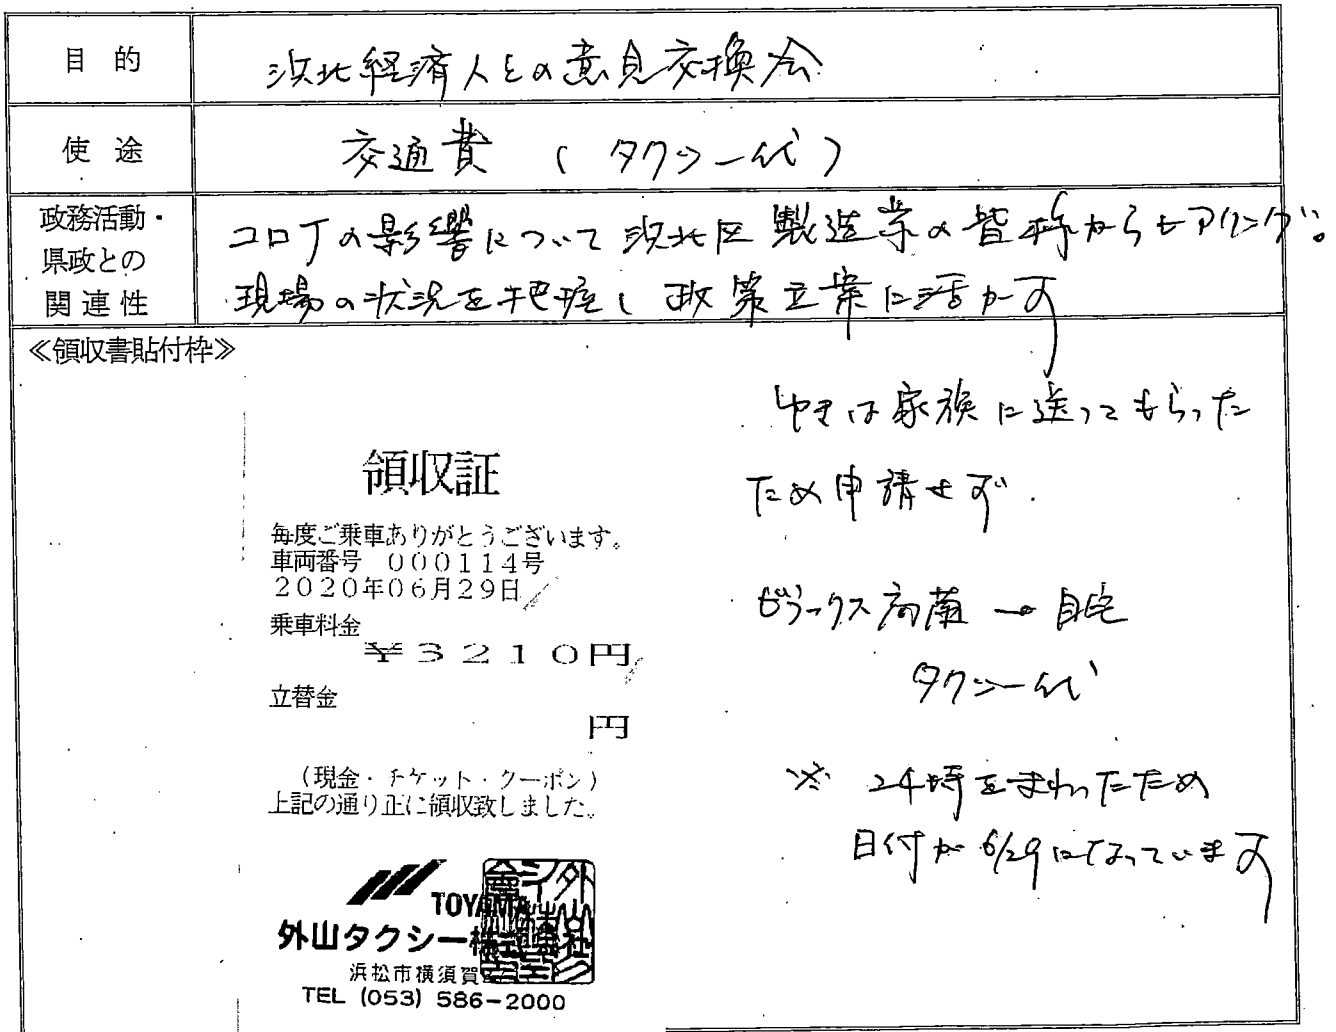 目的
浜北経済人との意見交換会
使途
交通費 (タクシー代)
政務活動・
県政との
関連性
コロナの影響について浜北区製造業の皆様からヒアリング。
現場の状況を把握し政策立案に活かす
≪領収書貼付枠≫
領収証
毎度ご乗車ありがとうございます。
車両番号 000114号
2020年06月29日
乗車料金
¥3210円
立替金
円
(現金・チケット・クーポン)
上記の通り正に領収致しました。
TOYAMA
外山タクシー株式会社
浜松市横須賀
TEL (053) 586-2000
ゆきは家族に送ってもらった
ため申請せず.
→ 自宅
タクシー代
※ 24時をまわったため
日付が6/29になっています